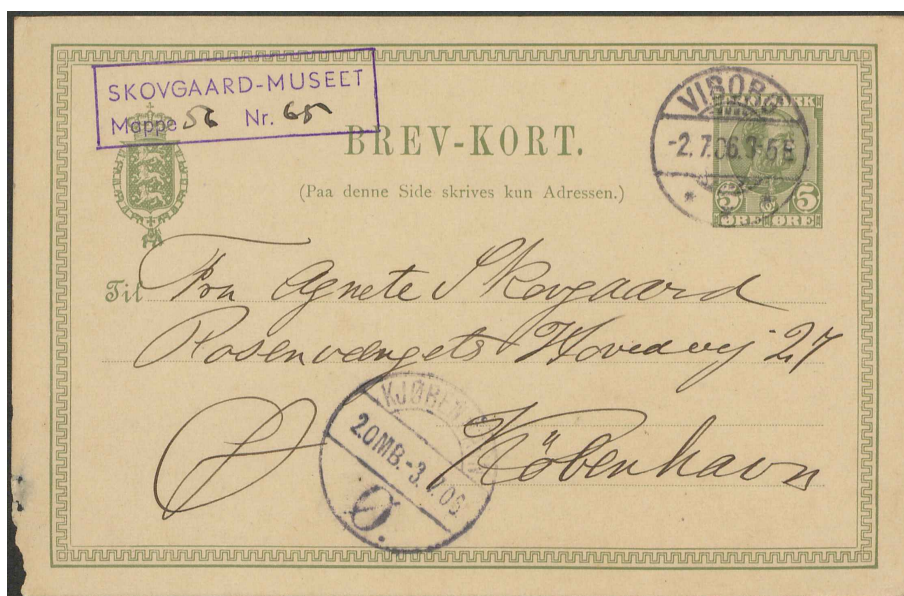 SKOVGAARD-MUSEET
Mappe 56 Nr. 65
BREV-KORT.
(Paa denne Side skrives kun Adressen.)
VIBORG
-2.7.06.
5 5
ØRE ØRE
Til Fru Agnete Skovgaard
Rosenvængets Hovedvej 27
Ø København
2.OMB.-3.7.06.
Ø.